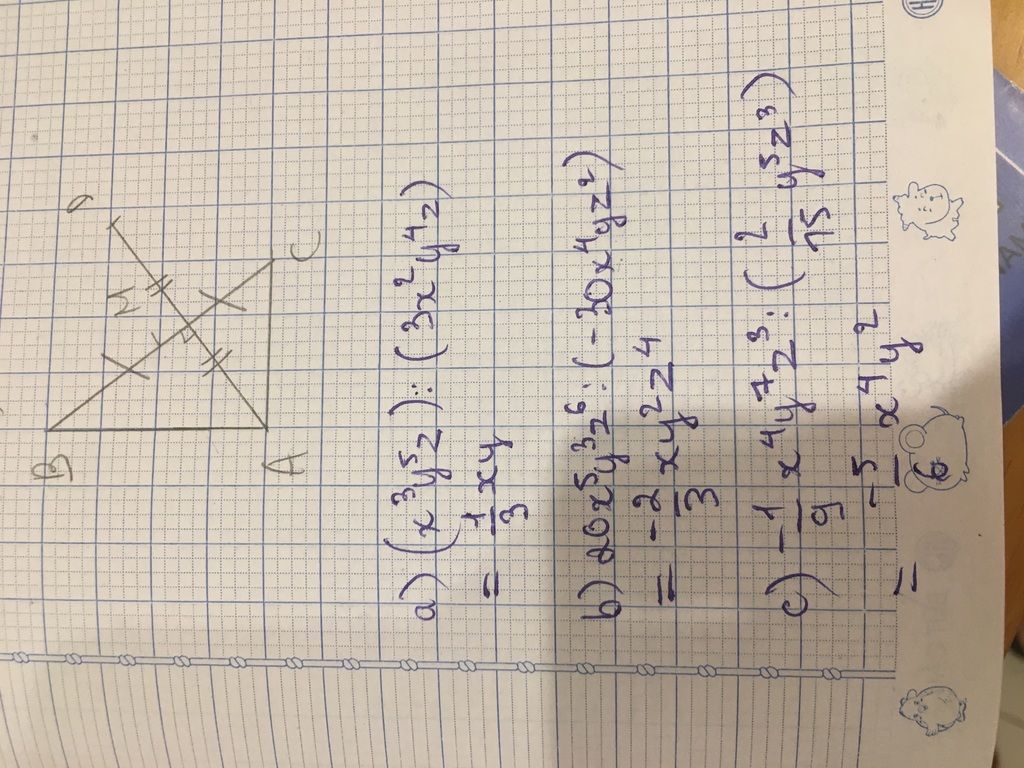 B
M
D
A
C
a) (x³y⁵z) : (3x²y⁴z)
= 1/3 xy
b) 20x⁵y³z⁶ : (-30x⁴yz²)
= -2/3 xy²z⁴
c) -1/9 x⁴y⁷z³ : (2/15 y⁵z³)
= -5/6 x⁴y²